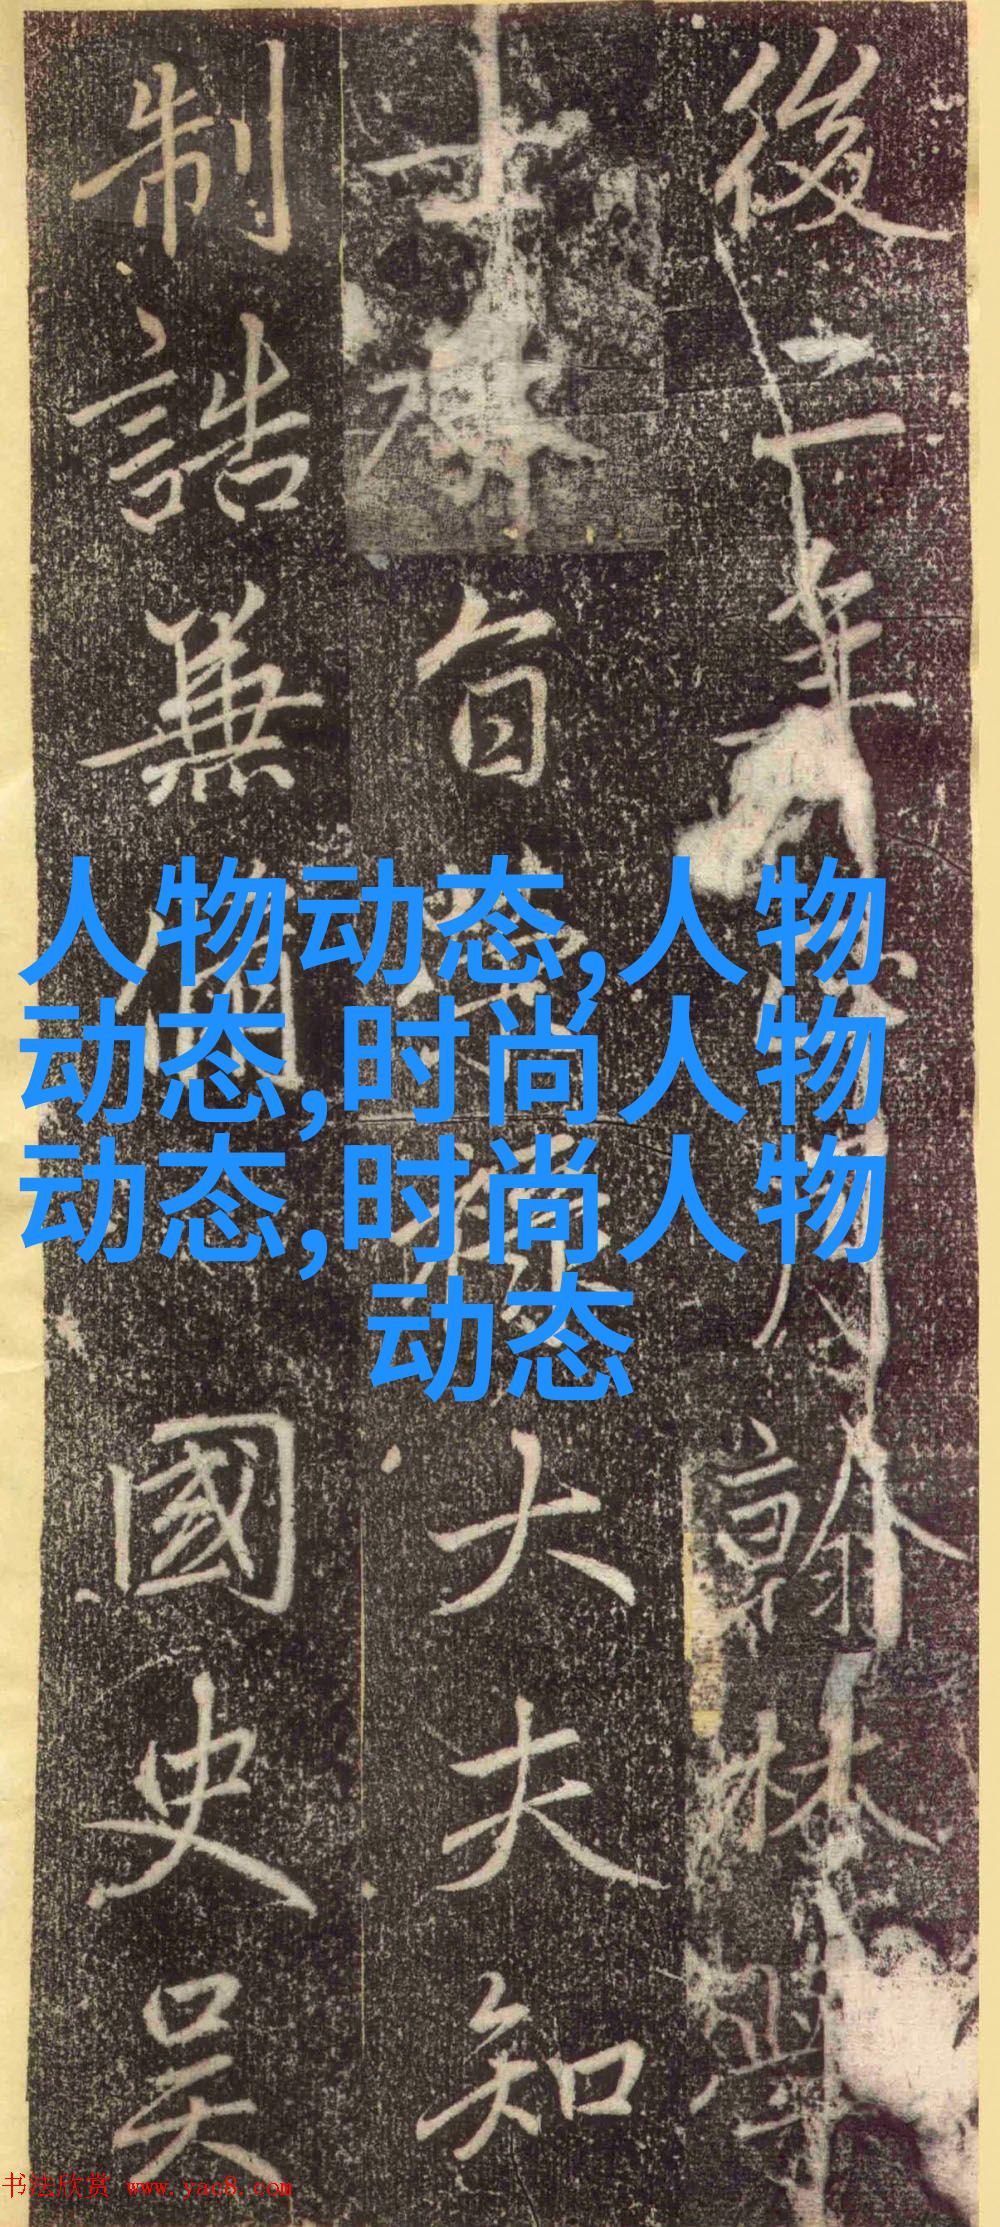 後二年
翰林學
士
旨
大夫知
制誥兼脩
國史吴
人物动态,人物
动态,时尚人物
动态,时尚人物
动态
书法欣赏 www.yac8.com